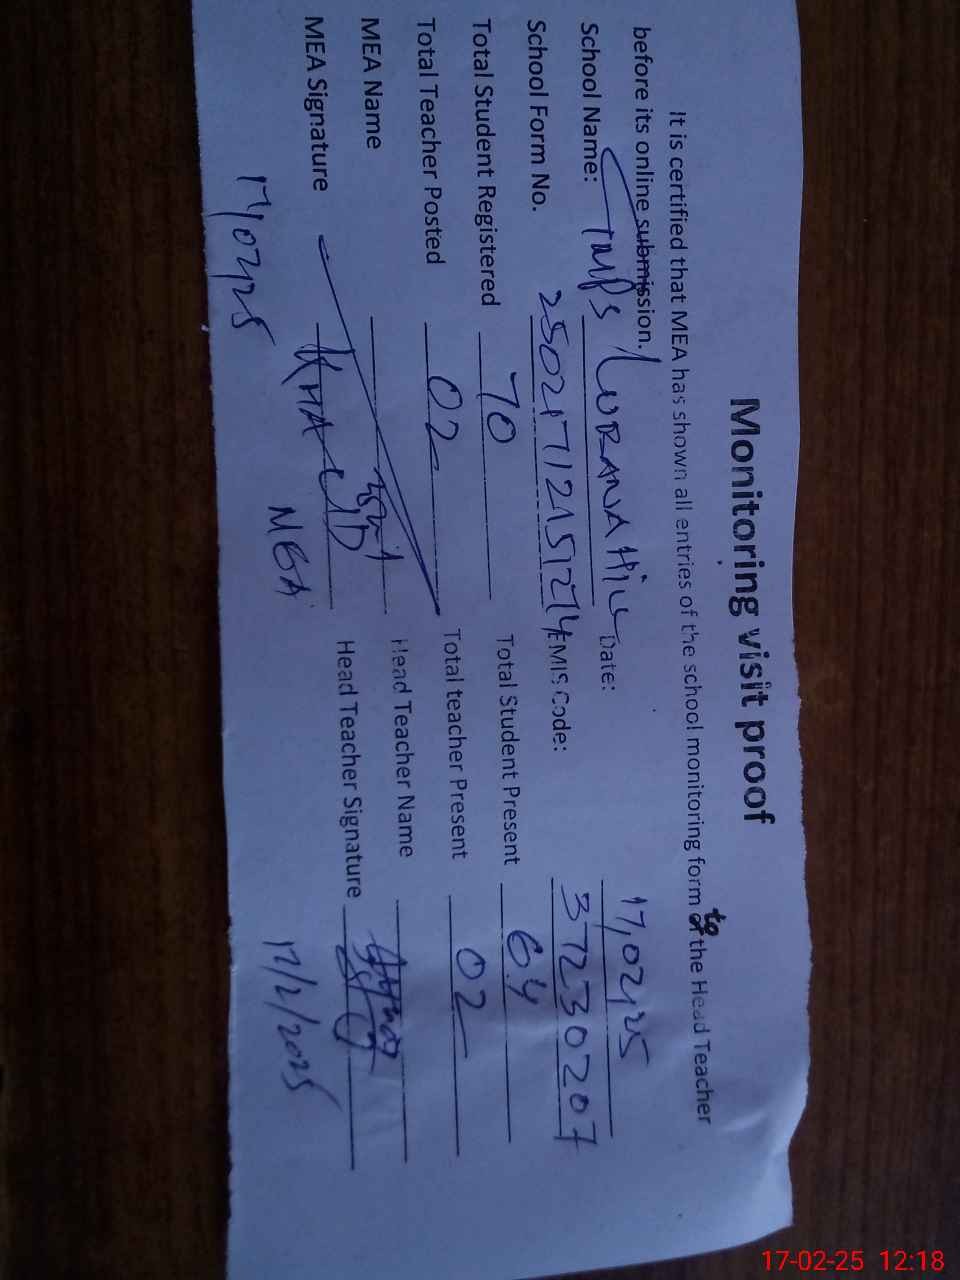 Monitoring visit proof
It is certified that MEA has shown all entries of the school monitoring form to the Head Teacher
before its online submission.
School Name: Date: 17,02,25
School Form No. EMIS Code: 37230207
Total Student Registered 70 Total Student Present 64
Total Teacher Posted 02 Total teacher Present 02
MEA Name Head Teacher Name
MEA Signature Head Teacher Signature
MEA 17/2/2025
17/02/25
17-02-25 12:18